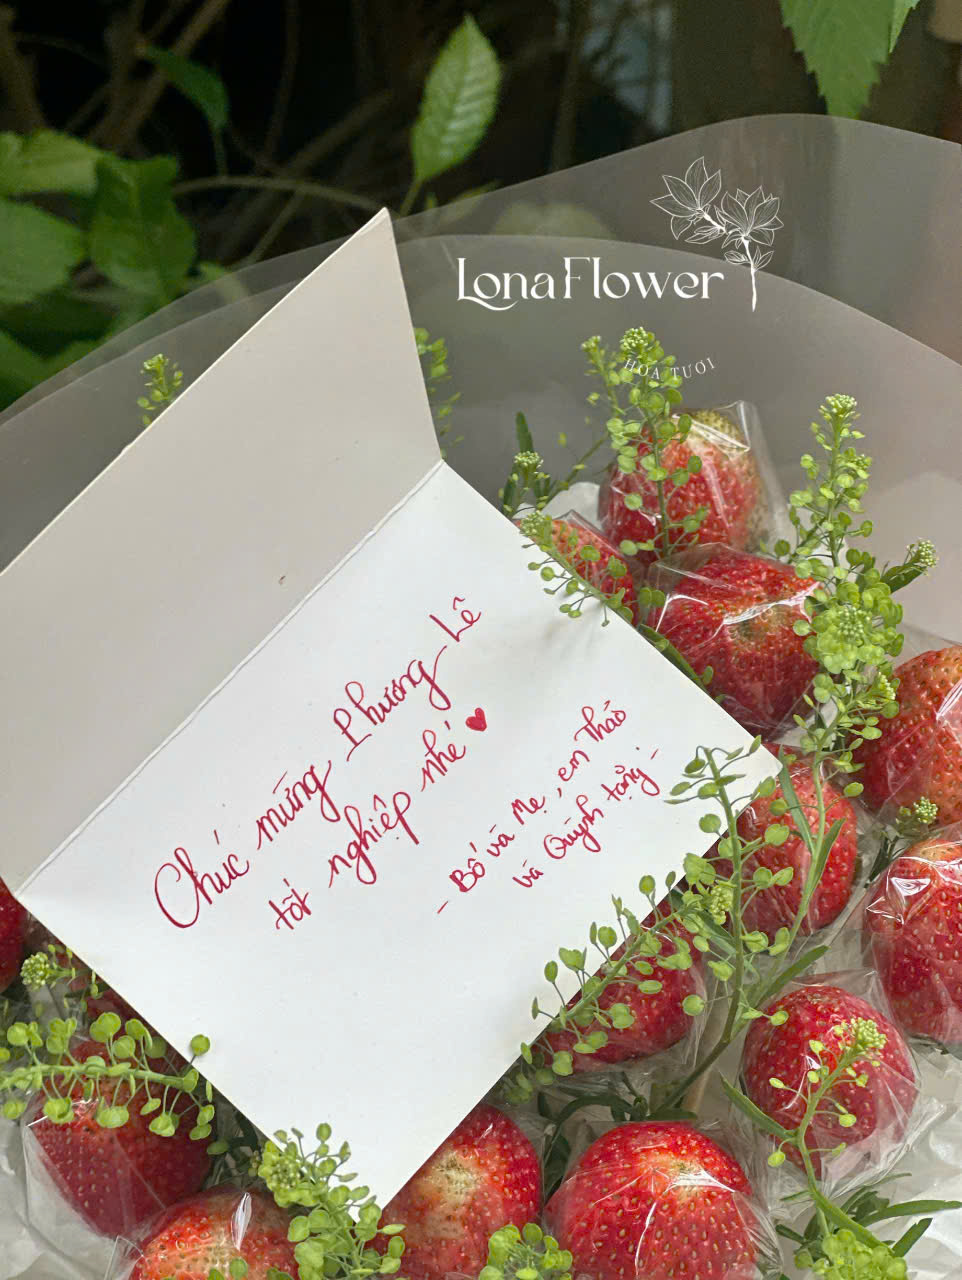 LonaFlower
HOA TƯƠI
Chúc mừng Phương Lê
tốt nghiệp nhé
- Bố và Mẹ, em Thảo
và Quỳnh tặng -